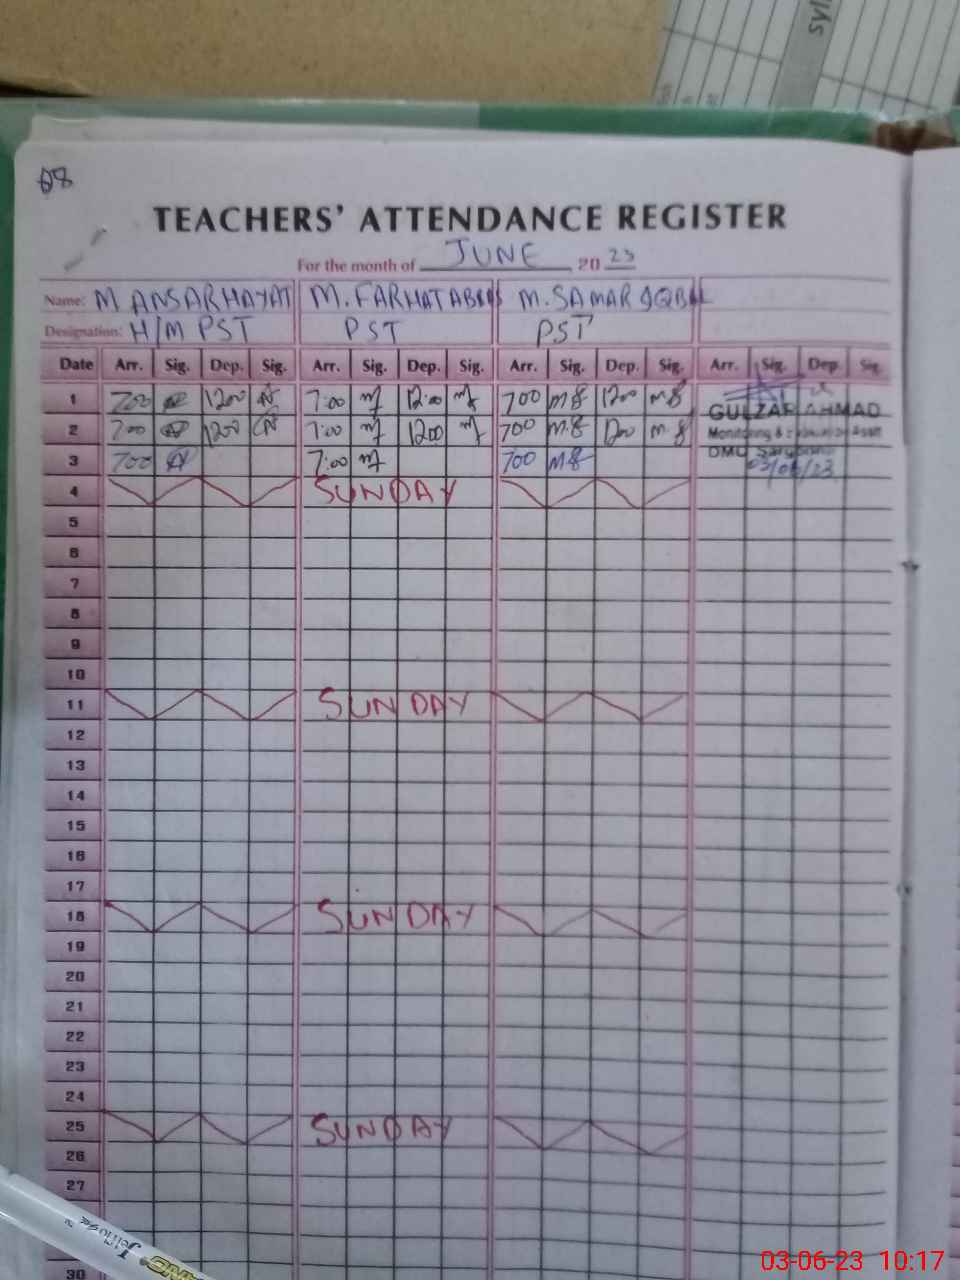 08
TEACHERS' ATTENDANCE REGISTER
For the month of JUNE 20 23
Name: M ANSARHAYAT M. FARHAT ABBAS M. SAMAR IQBAL
Designation: H/M PST PST PST
Date Arr. Sig. Dep. Sig. Arr. Sig. Dep. Sig. Arr. Sig. Dep. Sig. Arr. Sig. Dep. Sig.
1 700 1200 7:00 12:00 700 1200
GULZAR AHMAD
2 700 1200 7:00 1200 700 1200
Monitoring & Evaluation Asstt
DMO Sargodha
3 700 7:00 700 03/06/23
4 SUNDAY
5
6
7
8
9
10
11 SUNDAY
12
13
14
15
16
17
18 SUNDAY
19
20
21
22
23
24
25 SUNDAY
26
27
30
03-06-23 10:17